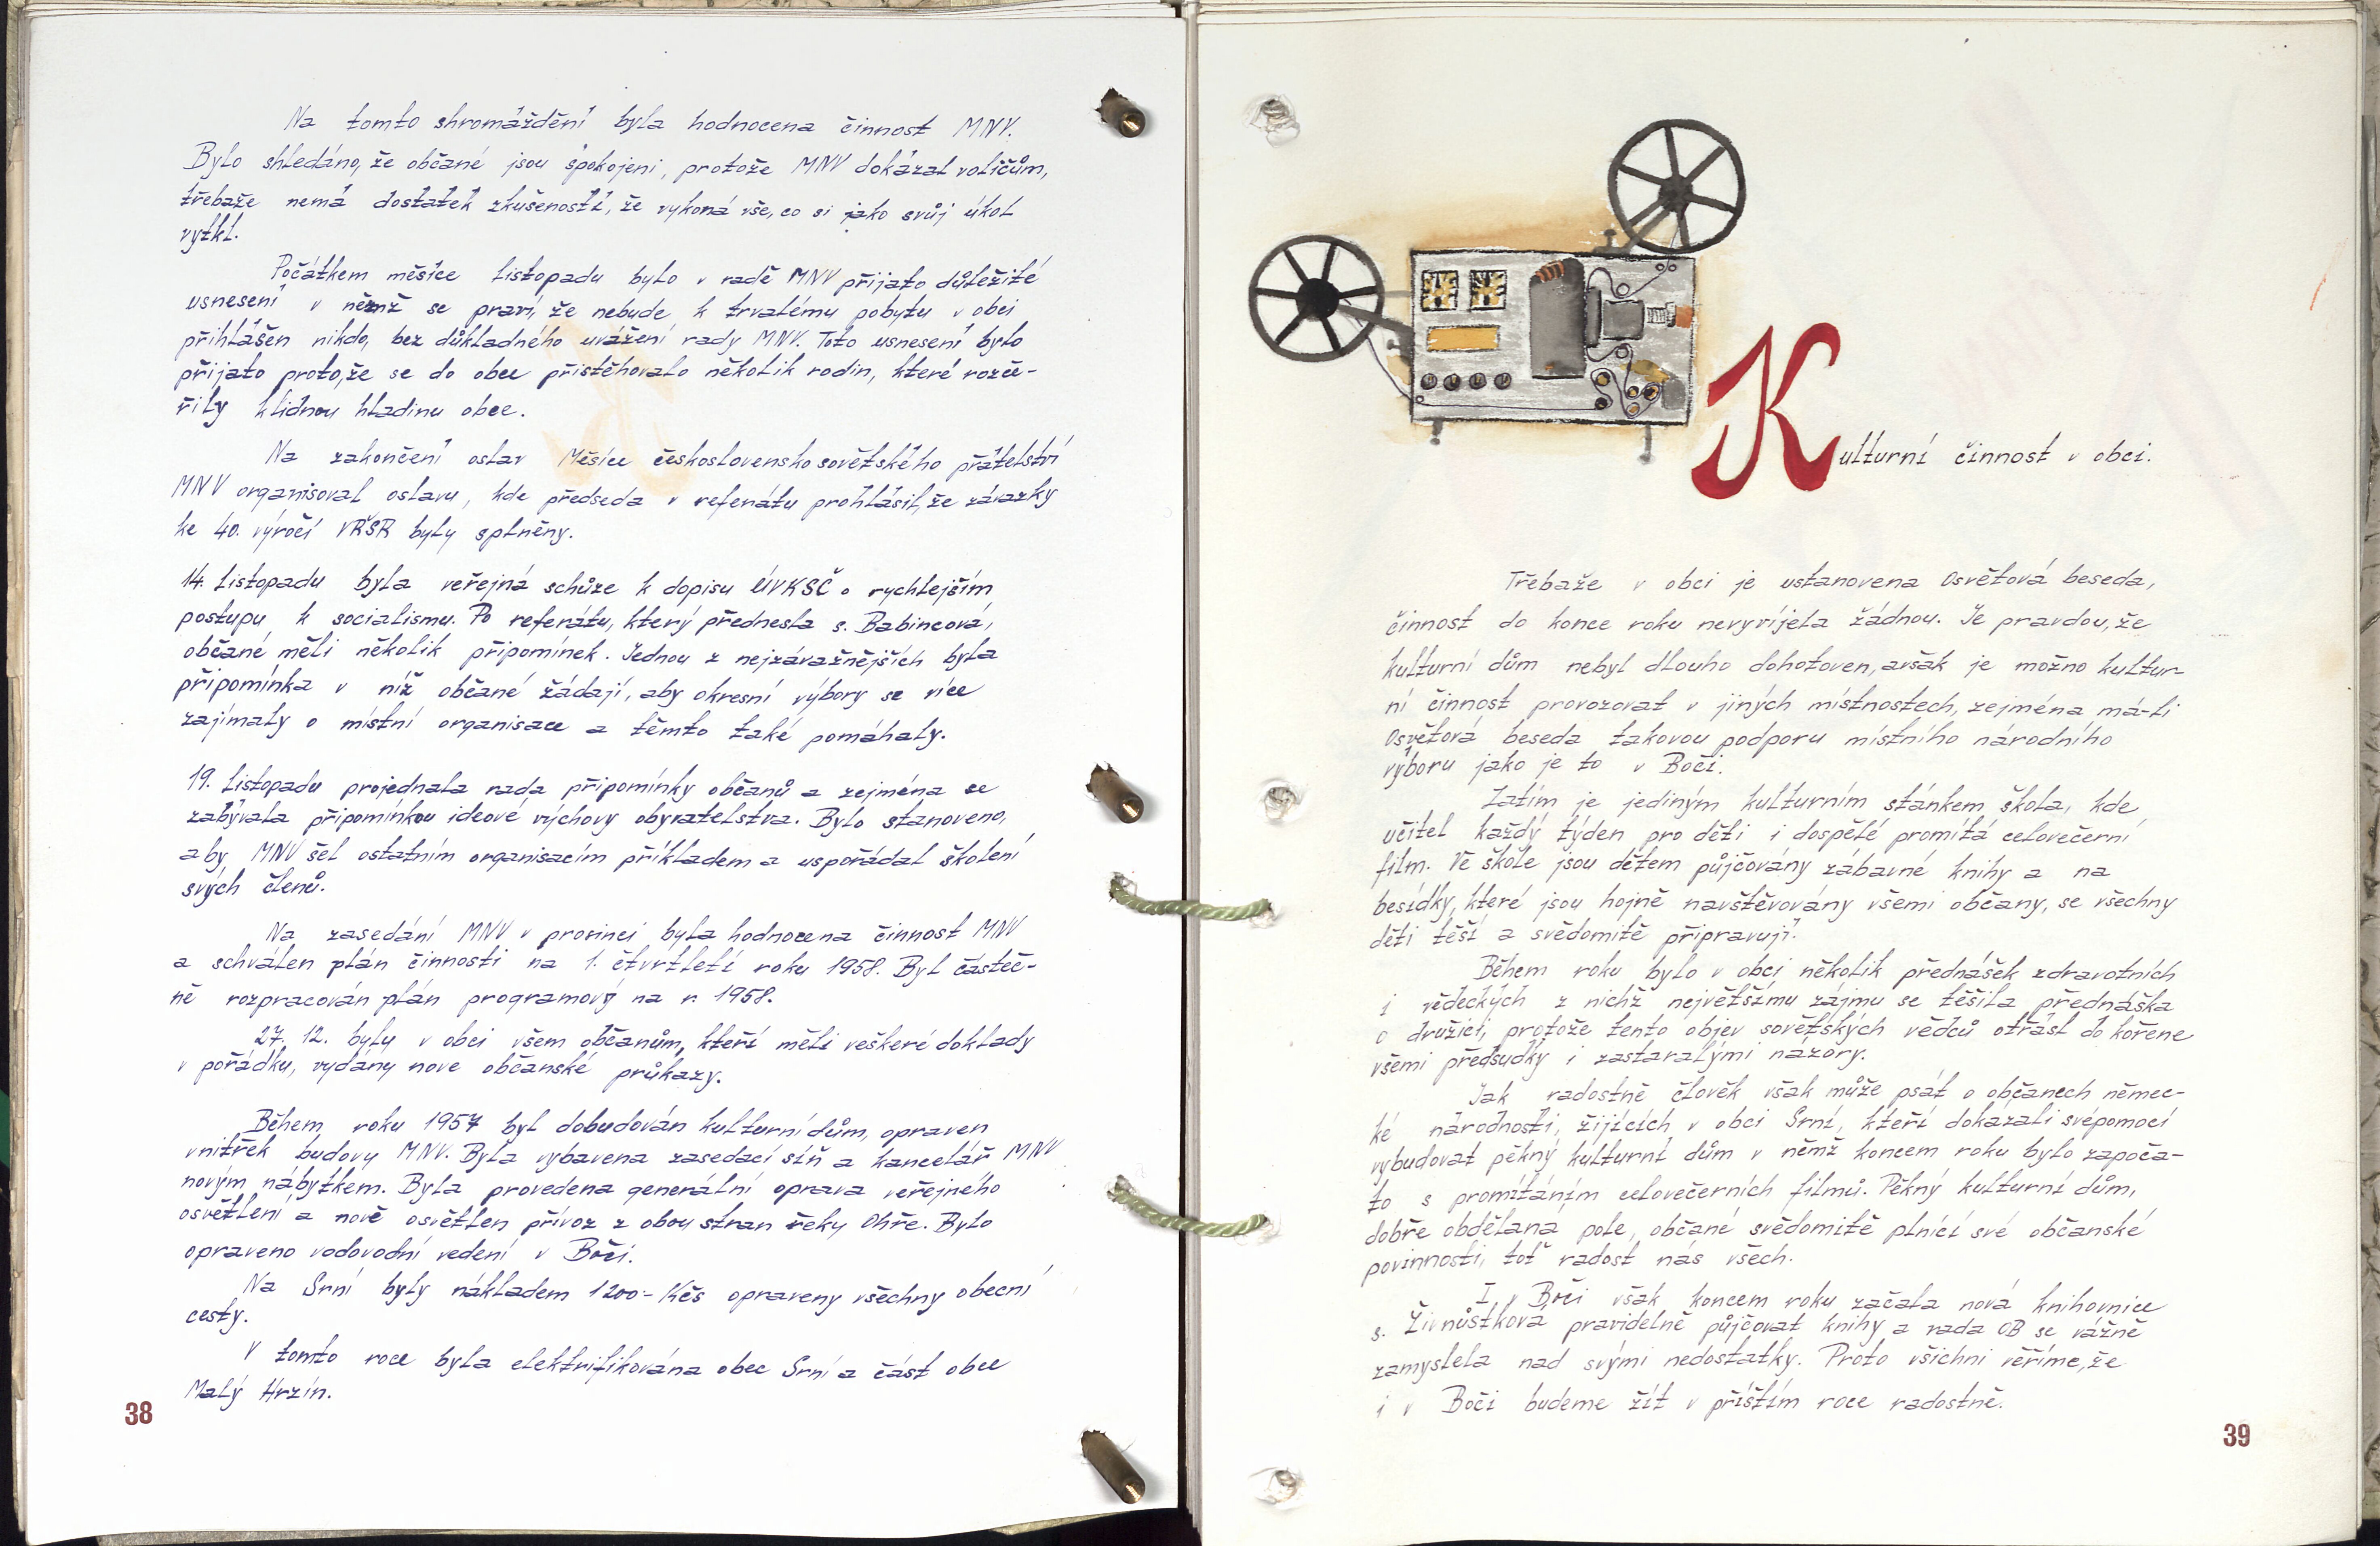 Na tomto shromáždění byla hodnocena činnost MNV.
Bylo shledáno, že občané jsou spokojeni, protože MNV dokázal voličům,
třebaže nemá dostatek zkušeností, že vykoná vše, co si jako svůj úkol
vytkl.
Počátkem měsíce listopadu bylo v radě MNV přijato důležité
usnesení v němž se praví, že nebude k trvalému pobytu v obci
přihlášen nikdo, bez důkladného uvážení rady MNV. Toto usnesení bylo
přijato proto, že se do obce přistěhovalo několik rodin, které rozče-
řily klidnou hladinu obce.
Na zakončení oslav Měsíce československo sovětského přátelství
MNV organisoval oslavu, kde předseda v referátu prohlásil, že závazky
ke 40. výročí VŘSR byly splněny.
14. listopadu byla veřejná schůze k dopisu ÚVKSČ o rychlejším
postupu k socialismu. Po referátu, který přednesla s. Babincová,
občané měli několik připomínek. Jednou z nejzávažnějších byla
připomínka v níž občané žádají, aby okresní výbory se více
zajímaly o místní organisace a těmto také pomáhaly.
19. listopadu projednala rada připomínky občanů a zejména se
zabývala připomínkou ideové výchovy obyvatelstva. Bylo stanoveno,
aby MNV šel ostatním organisacím příkladem a uspořádal školení
svých členů.
Na zasedání MNV v prosinci byla hodnocena činnost MNV
a schválen plán činnosti na 1. čtvrtletí roku 1958. Byl částeč-
ně rozpracován plán programový na r. 1958.
27. 12. byly v obci všem občanům, kteří měli veškeré doklady
v pořádku, vydány nove občanské průkazy.
Během roku 1957 byl dobudován kulturní dům, opraven
vnitřek budovy MNV. Byla vybavena zasedací síň a kancelář MNV
novým nábytkem. Byla provedena generální oprava veřejného
osvětlení a nově osvětlen přívoz z obou stran řeky Ohře. Bylo
opraveno vodovodní vedení v Boči.
Na Srní byly nákladem 1200- Kčs opraveny všechny obecní
cesty.
V tomto roce byla elektrifikována obec Srní a část obce
Malý Hrzín.
38
Kulturní činnost v obci.
Třebaže v obci je ustanovena Osvětová beseda,
činnost do konce roku nevyvíjela žádnou. Je pravdou, že
kulturní dům nebyl dlouho dohotoven, avšak je možno kultur-
ní činnost provozovat v jiných místnostech, zejména má-li
Osvětová beseda takovou podporu místního národního
výboru jako je to v Boči.
Zatím je jediným kulturním stánkem škola, kde
učitel každý týden pro děti i dospělé promítá celovečerní
film. Ve škole jsou dětem půjčovány zábavné knihy a na
besídky, které jsou hojně navštěvovány všemi občany, se všechny
děti těší a svědomitě připravují.
Během roku bylo v obci několik přednášek zdravotních
i vědeckých z nichž největšímu zájmu se těšila přednáška
o družici, protože tento objev sovětských vědců otřásl do kořene
všemi předsudky i zastaralými názory.
Jak radostně člověk však může psát o občanech němec-
ké národnosti, žijících v obci Srní, kteří dokázali svépomocí
vybudovat pěkný kulturní dům v němž koncem roku bylo započa-
to s promítáním celovečerních filmů. Pěkný kulturní dům,
dobře obdělaná pole, občané svědomitě plnící své občanské
povinnosti, toť radost nás všech.
I v Boči však koncem roku začala nová knihovnice
s. Živnůstková pravidelně půjčovat knihy a rada OB se vážně
zamyslela nad svými nedostatky. Proto všichni věříme, že
i v Boči budeme žít v příštím roce radostně.
39